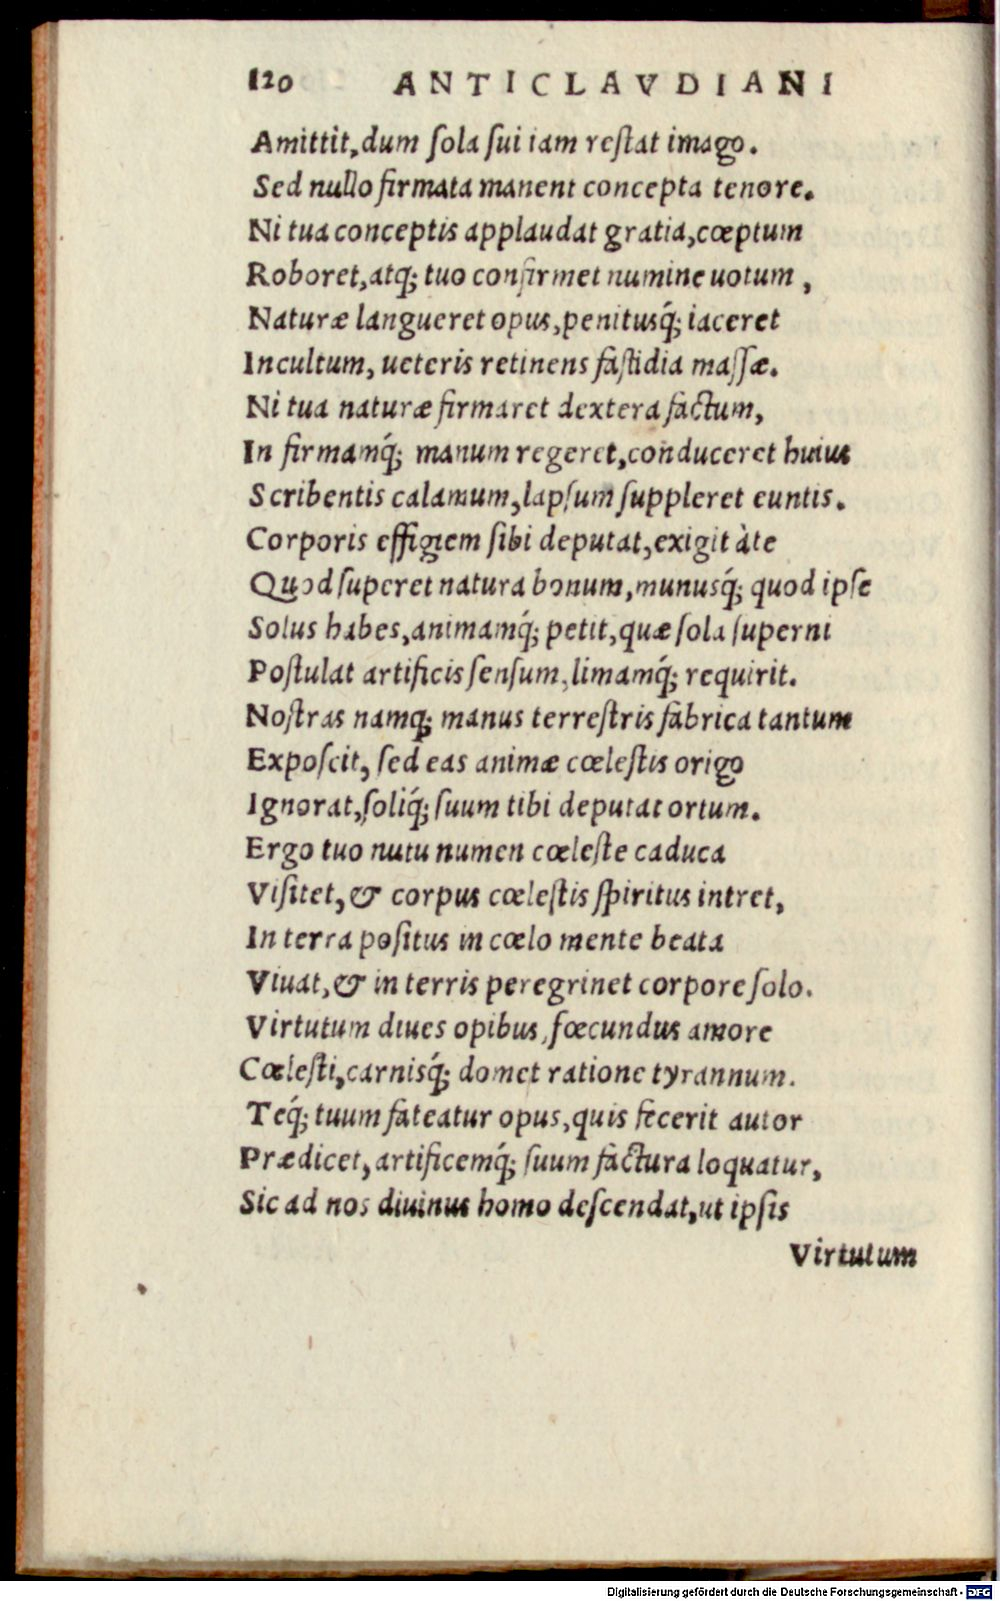 120 ANTICLAVDIANI
Amittit, dum ſola ſui iam reſtat imago.
Sed nullo firmata manent concepta tenore.
Ni tua conceptis applaudat gratia, cœptum
Roboret, atq; tuo confirmet numine uotum,
Naturæ langueret opus, penitusq́; iaceret
Incultum, ueteris retinens faſtidia maſſæ.
Ni tua naturæ firmaret dextera factum,
In firmamq́; manum regeret, conduceret huius
Scribentis calamum, lapſum ſuppleret euntis.
Corporis effigiem ſibi deputat, exigit àte
Quod ſuperet natura bonum, munusq́; quod ipſe
Solus habes, animamq́; petit, quæ ſola ſuperni
Poſtulat artificis ſenſum, limamq́; requirit.
Noſtras namq; manus terreſtris fabrica tantum
Expoſcit, ſed eas animæ cœleſtis origo
Ignorat, ſoliq́; ſuum tibi deputat ortum.
Ergo tuo nutu numen cœleſte caduca
Viſitet, & corpus cœleſtis ſpiritus intret,
In terra poſitus in cœlo mente beata
Viuat, & in terris peregrinet corpore ſolo.
Virtutum diues opibus, fœcundus amore
Cœleſti, carnisq́; domet ratione tyrannum.
Teq́; tuum fateatur opus, quis fecerit autor
Prædicet, artificemq́; ſuum factura loquatur,
Sic ad nos diuinus homo deſcendat, ut ipſis
Virtutum
Digitalisierung gefördert durch die Deutsche Forschungsgemeinschaft - DFG